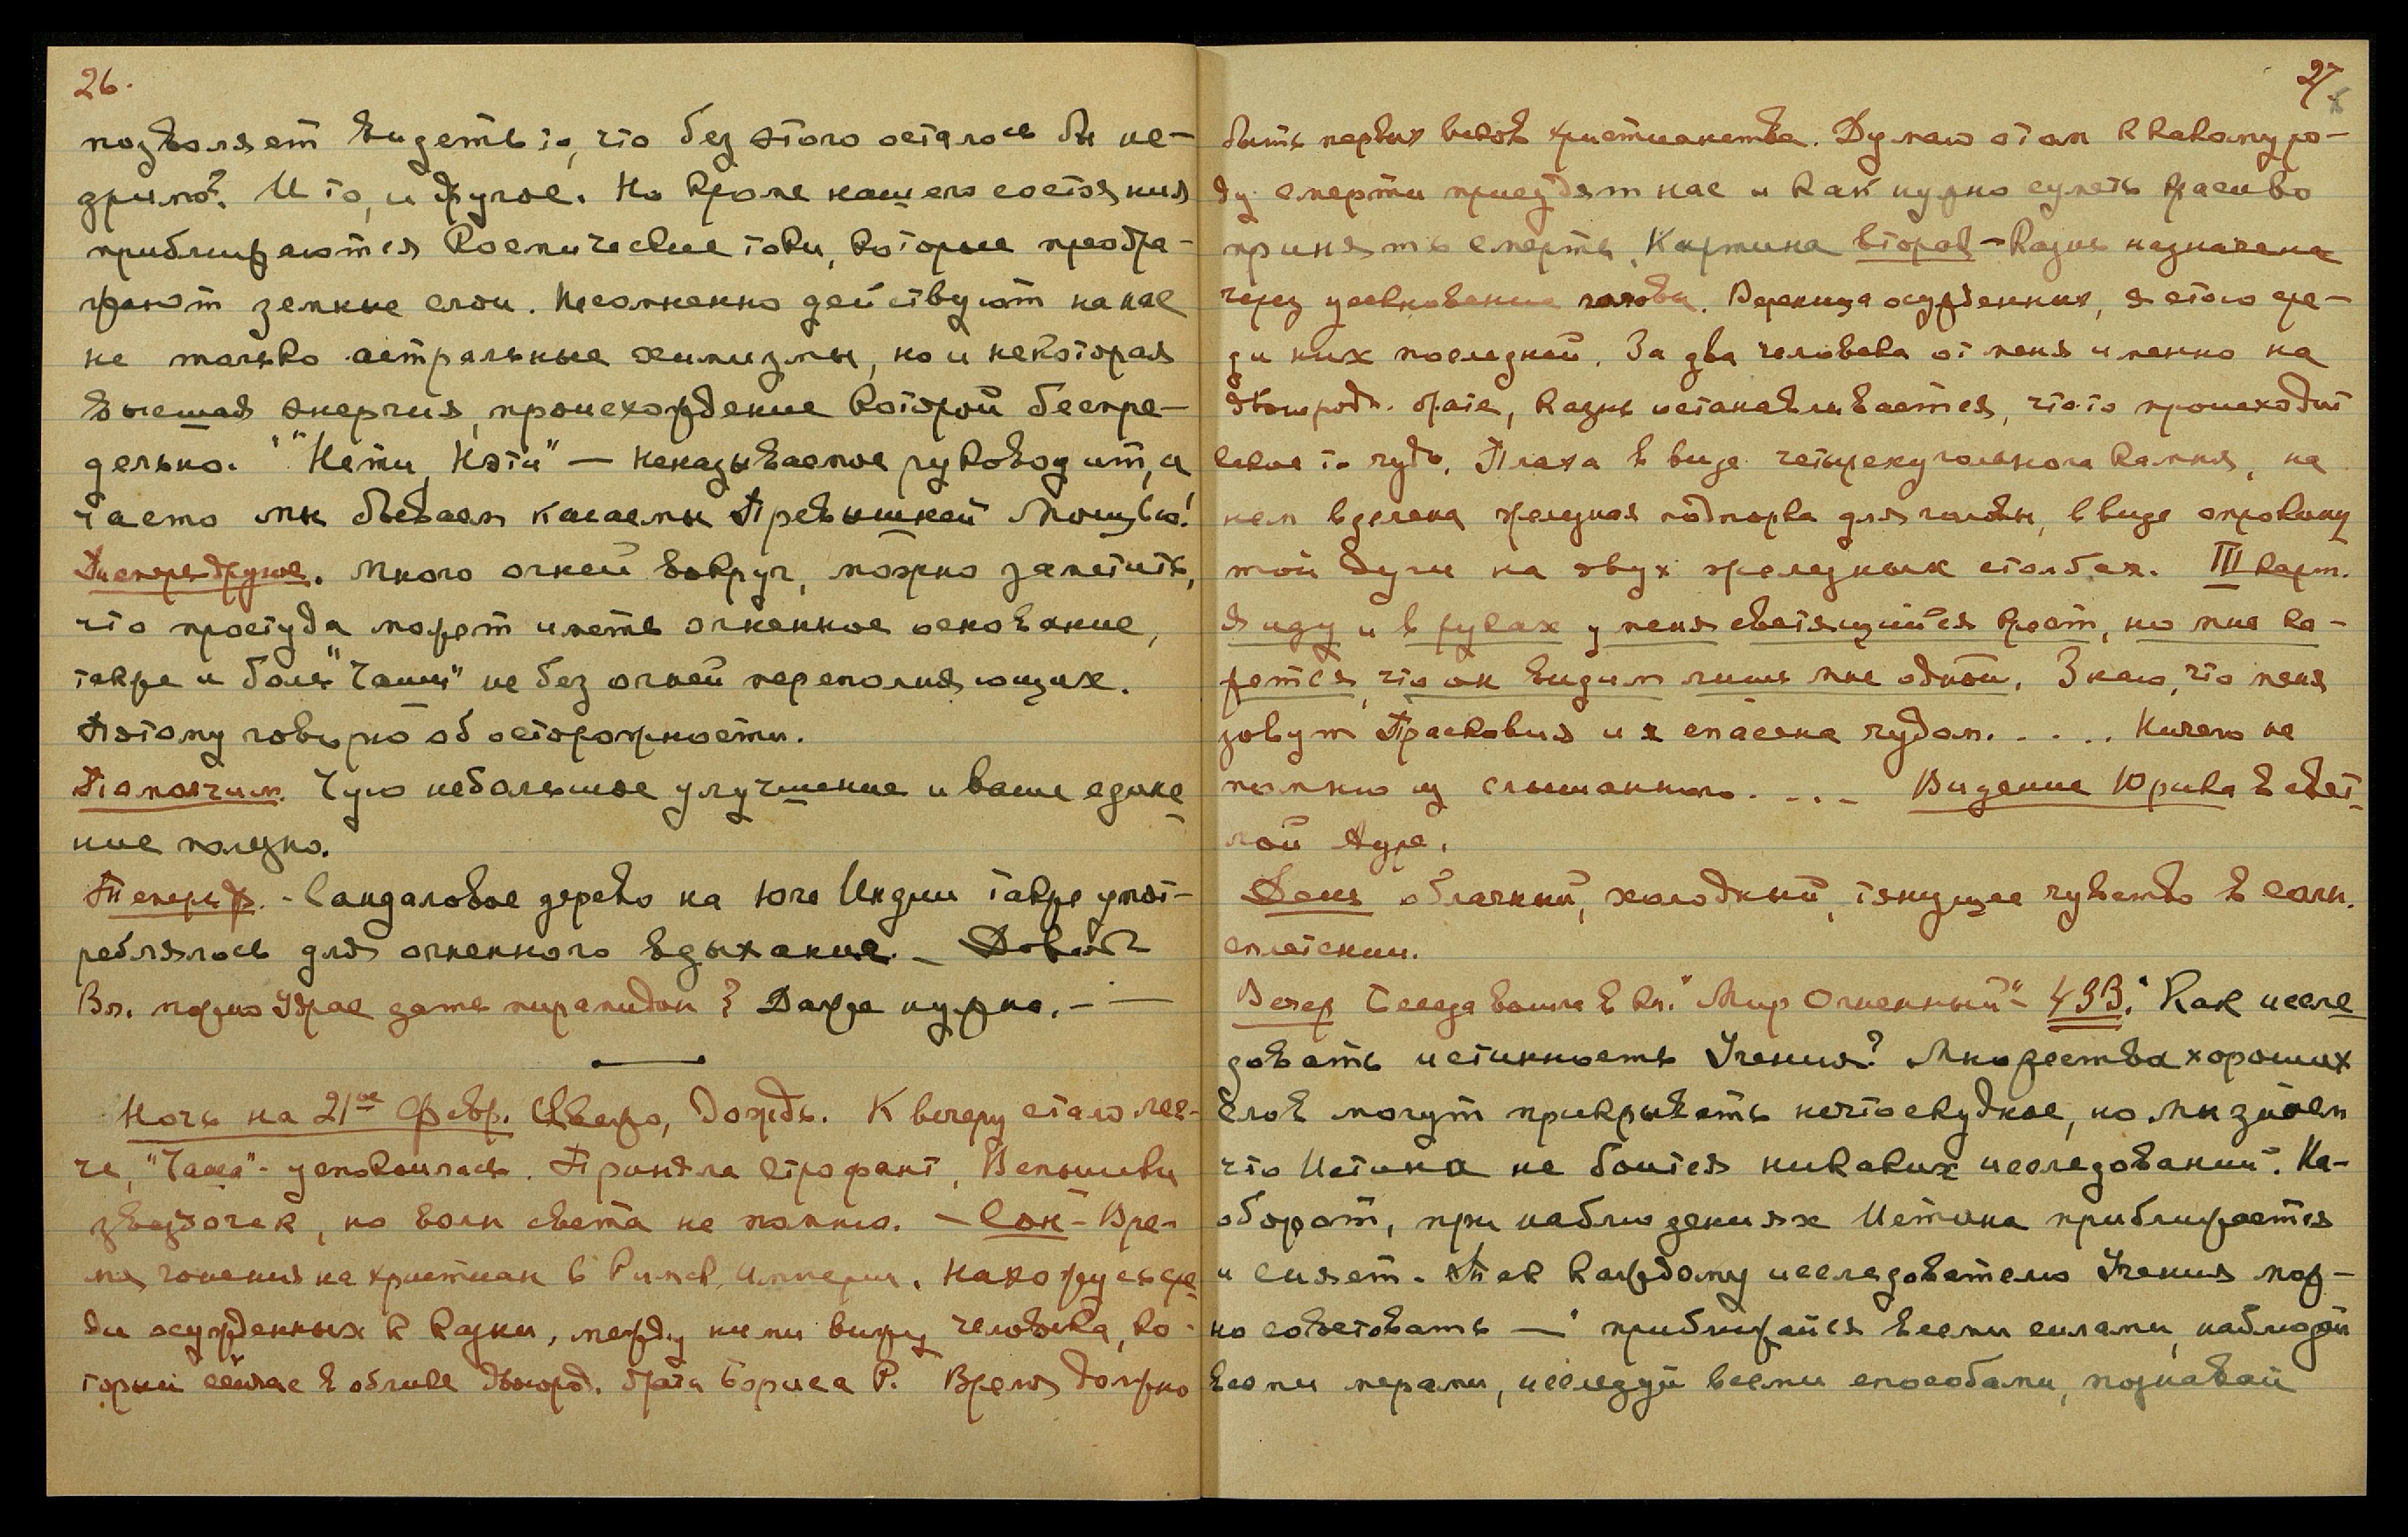 26.
позволяет видеть то, что без этого осталось бы не-
зримо? И то, и другое. Но кроме нашего состояния
приближаются космические токи, которые преобра-
жают земные слои. Несомненно действуют на нас
не только астральные химизмы, но и некоторая
высшая энергия, происхождение которой беспре-
дельно. "Нети, Нэти" — неназываемое руководит, и
часто мы бываем касаемы Превышней Мощью!
много огней вокруг, можно заметить,
что простуда может иметь огненное основание,
также и боль "Чаши" не без огней переполняющих.
Поэтому говорю об осторожности.
Помолчим. Чую небольшое улучшение и ваше едине
ние полезно.
Теперь др. - Сандаловое дерево на юге Индии также упот-
реблялось для огненного вдыхания. — Довольно
Вл. можно Удрае дать пирамидон? Даже нужно. — —
Ночь на 21ое Февр. Свежо, Дождь. К вечеру стало лег-
че, "Чаша" - успокоилась. Приняла строфант. Вспышки
звездочек, но волн света не помню. — Сон - Вре-
мя гонения на христиан в Римск. империи. Нахожусь сре
ди осужденных к казни, между ними вижу человека, ко-
торый сейчас в облике двоюрод. брата Бориса Р. Время должно
27
быть первых веков христианства. Думаю о том к какому ро-
ду смерти присудят нас и как нужно суметь красиво
принять смерть. Картина вторая — Казнь назначена
через усекновение головы. Вереница осужденных, я стою сре-
ди них последней. За два человека от меня именно на
двоюродн. брате, казнь останавливается, что-то происходит
некое то чудо. Плаха в виде четырехугольного камня, на
нем вделана железная подпорка для головы, в виде опрокину
той дуги на двух железных столбах. III карт.
Я иду и в руках у меня светящийся крест, но мне ка-
жется, что он видим лишь мне одной. Знаю, что меня
зовут Прасковия и я спасена чудом. . . . . Ничего не
помню из слышанного. . . — Видение Юрика в свет-
лой Ауре.
День облачный, холодный, тянущее чувство в солн.
сплетении.
Вечер Беседа вошла в кн. "Мир Огненный" - 493." Как иссле
довать истинность Учения? Множества хороших
слов могут прикрывать нечто скудное, но мы знаем
что Истина не боится никаких исследований. На-
оборот, при наблюдениях Истина приближается
и сияет. Так каждому исследователю Учения мож-
но советовать — "приближайся всеми силами, наблюдай
всеми мерами, исследуй всеми способами, познавай